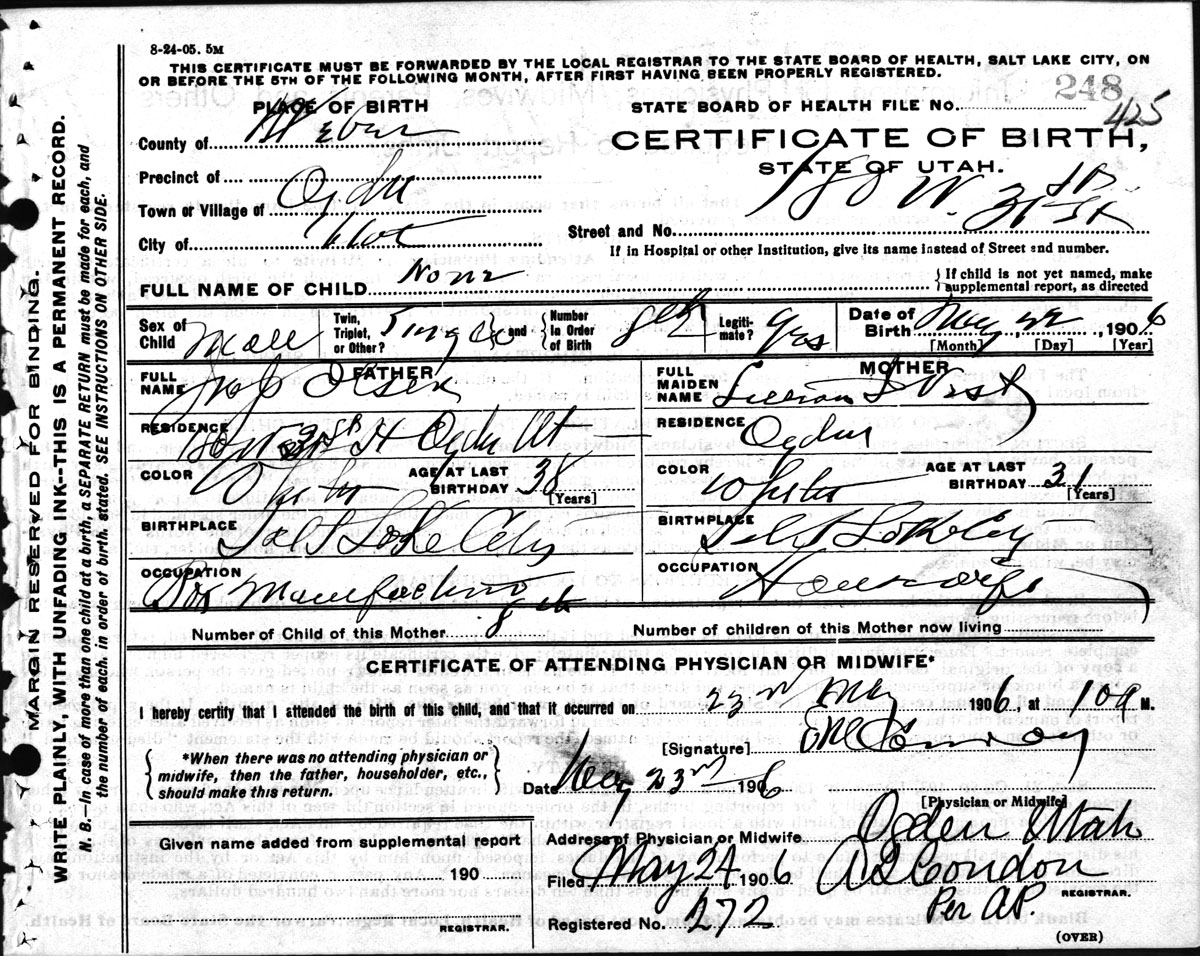 8-24-05. 5M
THIS CERTIFICATE MUST BE FORWARDED BY THE LOCAL REGISTRAR TO THE STATE BOARD OF HEALTH, SALT LAKE CITY, ON
OR BEFORE THE 5TH OF THE FOLLOWING MONTH, AFTER FIRST HAVING BEEN PROPERLY REGISTERED.
PLACE OF BIRTH
STATE BOARD OF HEALTH FILE No. 248
425
County of Weber
CERTIFICATE OF BIRTH,
STATE OF UTAH.
Precinct of
Town or Village of Ogden
City of Utah
Street and No. 180 W. 31st St
If in Hospital or other Institution, give its name instead of Street and number.
FULL NAME OF CHILD None
{ If child is not yet named, make
supplemental report, as directed
Sex of Child Male
Twin, Triplet, or Other? Single and
{ Number In Order of Birth 8th
Legitimate? Yes
Date of Birth May 22, 1906
[Month] [Day] [Year]
FATHER
FULL NAME Olsen
RESIDENCE 31st St Ogden Ut
COLOR White
AGE AT LAST BIRTHDAY 38
[Years]
BIRTHPLACE Salt Lake City
OCCUPATION Box Manufacturing
MOTHER
FULL MAIDEN NAME Lillian West
RESIDENCE Ogden
COLOR White
AGE AT LAST BIRTHDAY 31
[Years]
BIRTHPLACE Salt Lake City
OCCUPATION Housewife
Number of Child of this Mother 8th
Number of children of this Mother now living
CERTIFICATE OF ATTENDING PHYSICIAN OR MIDWIFE*
I hereby certify that I attended the birth of this child, and that it occurred on 23rd May 1906, at 10a M.
{ *When there was no attending physician or
midwife, then the father, householder, etc.,
should make this return. }
[Signature]
Date May 23rd 1906
[Physician or Midwife]
Given name added from supplemental report
190
REGISTRAR.
Address of Physician or Midwife Ogden Utah
Filed May 24 1906 A S Condon
REGISTRAR.
Per A.P.
Registered No. 272
(OVER)
MARGIN RESERVED FOR BINDING.
WRITE PLAINLY, WITH UNFADING INK--THIS IS A PERMANENT RECORD.
N. B.--In case of more than one child at a birth, a SEPARATE RETURN must be made for each, and
the number of each, in order of birth, stated. SEE INSTRUCTIONS ON OTHER SIDE.